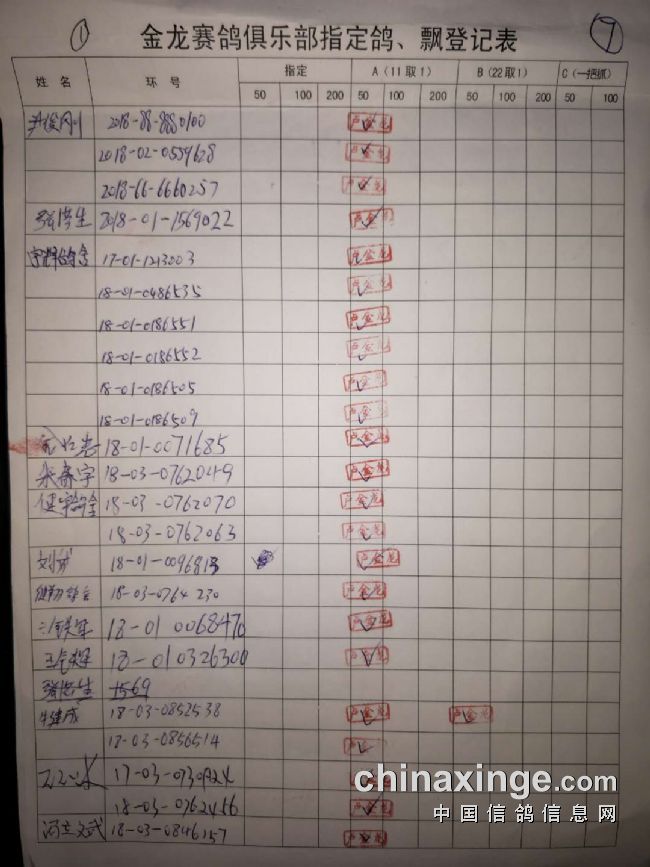 ① 金龙赛鸽俱乐部指定鸽、飘登记表 ⑦
姓名 环号 指定 A(11取1) B(22取1) C(一把抓)
50 100 200 50 100 200 50 100 200 50 100
2018-88-8880100 卢金龙
2018-02-0559628 卢金龙
2018-66-6660257 卢金龙
2018-01-1569022 卢金龙
17-01-1213003 卢金龙
18-01-0486535 卢金龙
18-01-0186551 卢金龙
18-01-0186552 卢金龙
18-01-0186505 卢金龙
18-01-0186509 卢金龙
18-01-0071685 卢金龙
18-03-0762049 卢金龙
18-03-0762070 卢金龙
18-03-0762063 卢金龙
刘 18-01-009681 卢金龙
18-03-0764230 卢金龙
18-01 0068470 卢金龙
18-010326300 卢金龙
1569
牛建成 18-03-0852538 卢金龙 卢金龙
18-03-0856514 卢金龙
17-03-0730
18-03-0762466
冯立文武 18-03-0846157 卢金龙
chinaxinge.com
中国信鸽信息网